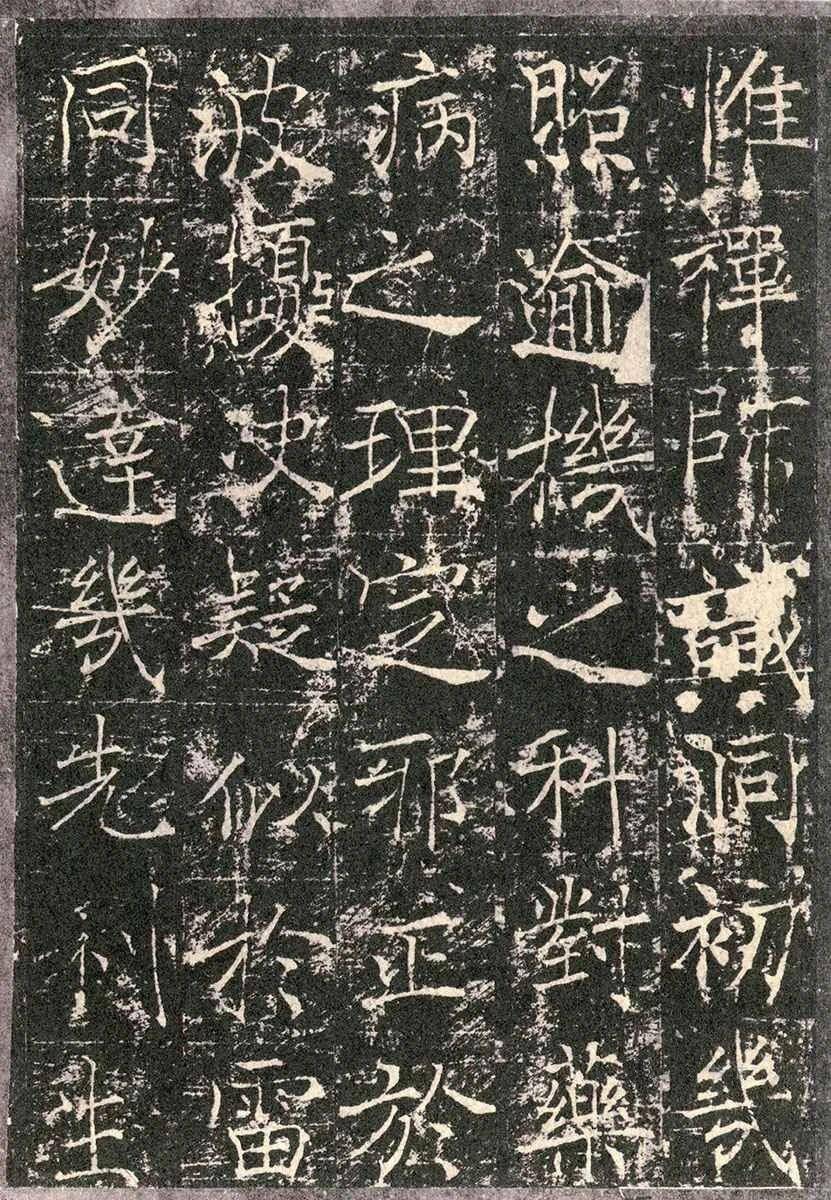 惟禪師識洞初幾
照逾機之科對藥
病之理定邪正於
波决疑似於雷
同妙達幾先利生